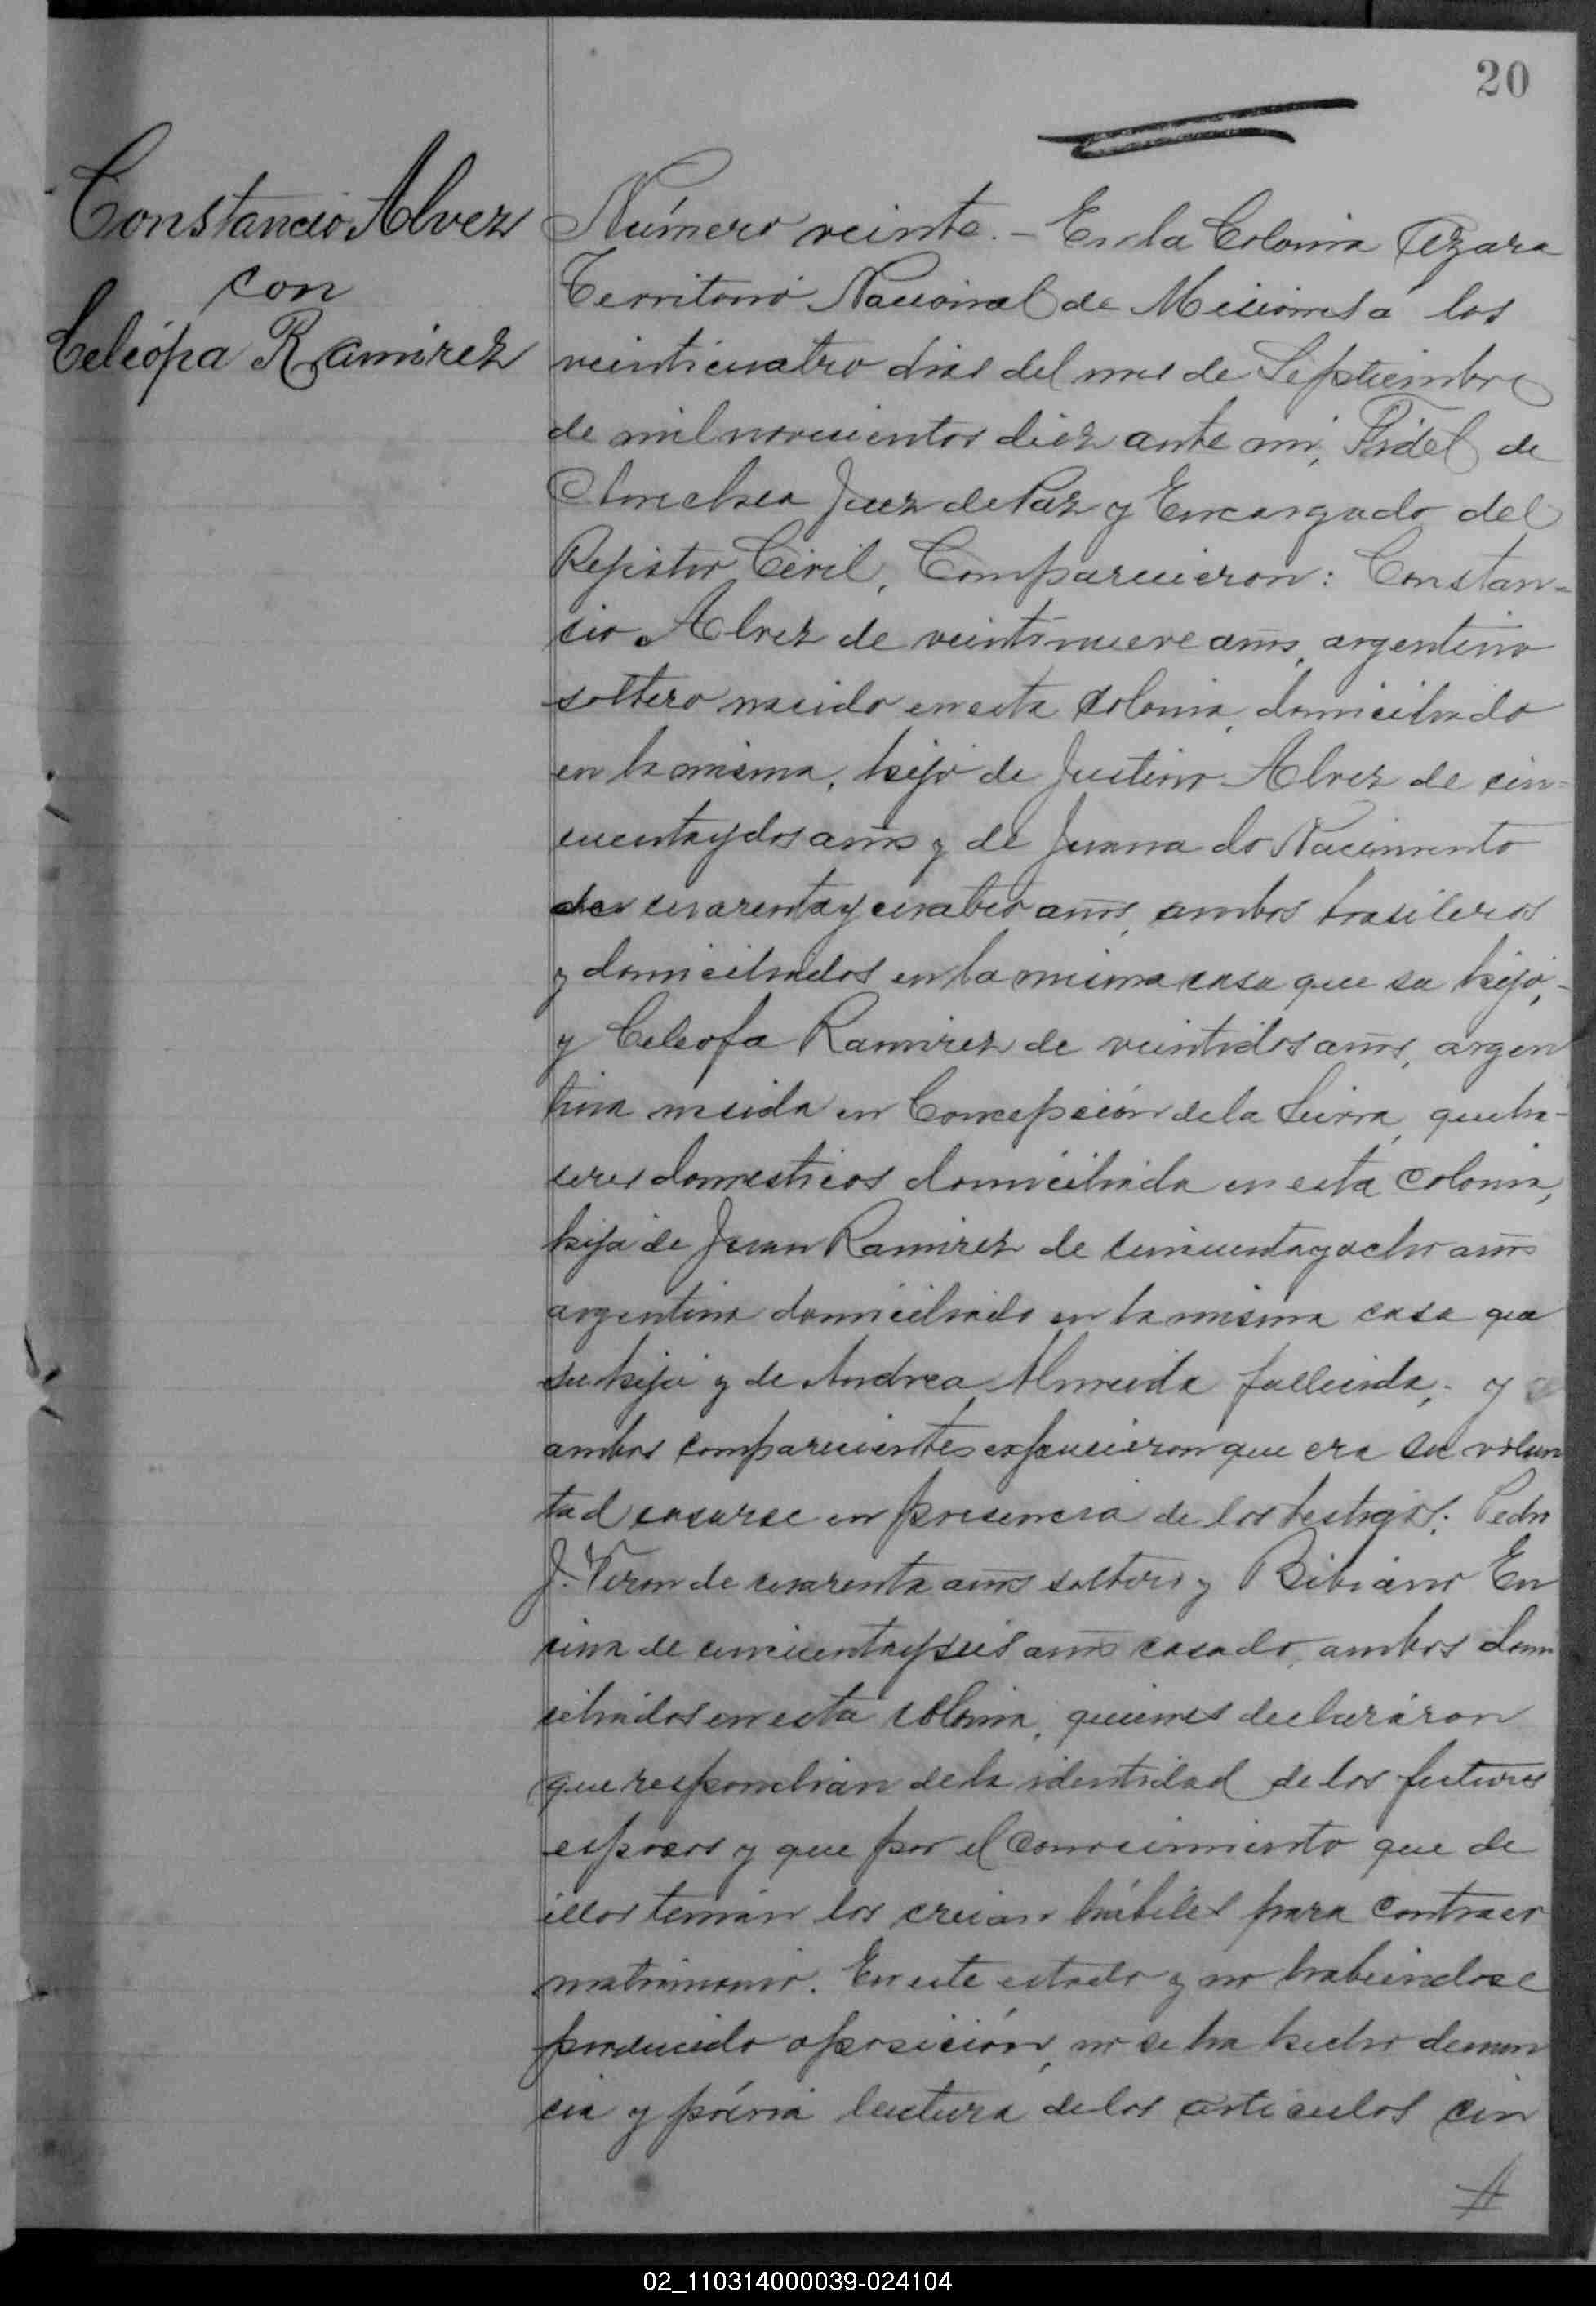 20
Constancio Alvez
con
Celeópa Ramirez
Número veinte.- En la Colonia Azara
Territorio Nacional de Misiones á los
veinticuatro dias del mes de Septiembre
de mil novecientos diez ante mi, Fidel de
Juez de Paz y Encargado del
Registro Civil, Comparecieron: Constan-
cio Alvez de veintinueve años, argentino
soltero nacido en esta Colonia, domiciliado
en la misma, hijo de Justino Alvez de cin-
cuentaydos años y de Juana do Nacimento
de cuarentaycuatro años, ambos brasileros
y domiciliados en la misma casa que su hijo,-
y Celeofa Ramirez de veintidos años, argen
tina nacida en Concepción de la Sierra, queha-
ceres domesticos domiciliada en esta Colonia,
hija de Juan Ramirez de cincuentayocho años
argentino domiciliado en la misma casa que
su hija y de Andrea Almeida fallecida,- y
ambos comparecientes expusieron que era su volun
tad casarse en presencia de los testigos: Pedro
J. Veron de cuarenta años soltero y Bibiano En
cina de cincuentayseis años casado, ambos domi
ciliados en esta colonia, quienes declaráron
que respondian de la identidad de los futuros
esposos y que por el Conocimiento que de
ellos tenian los creian hábiles para Contraer
matrimonio. En este estado y no habiendose
producido oposición, no se ha hecho denun
cia y prévia lectura de los articulos cin
//
02_110314000039-024104